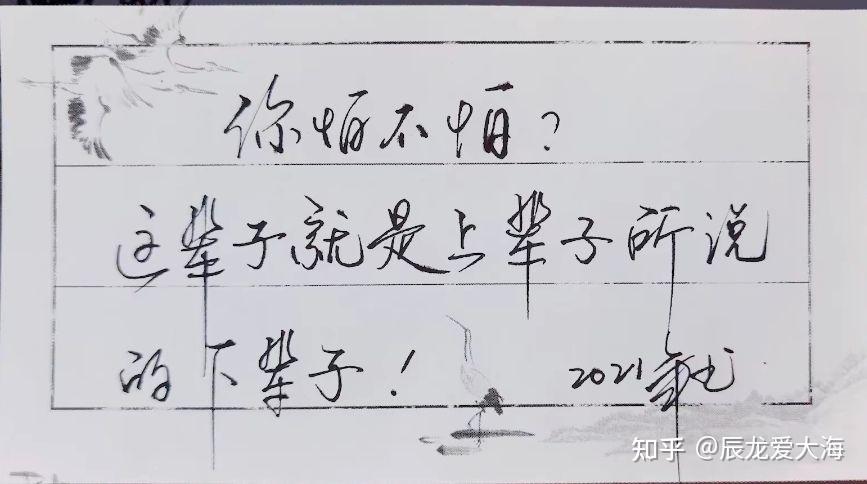 你怕不怕?
这辈子就是上辈子所说
的下辈子! 2021
知乎 @辰龙爱大海